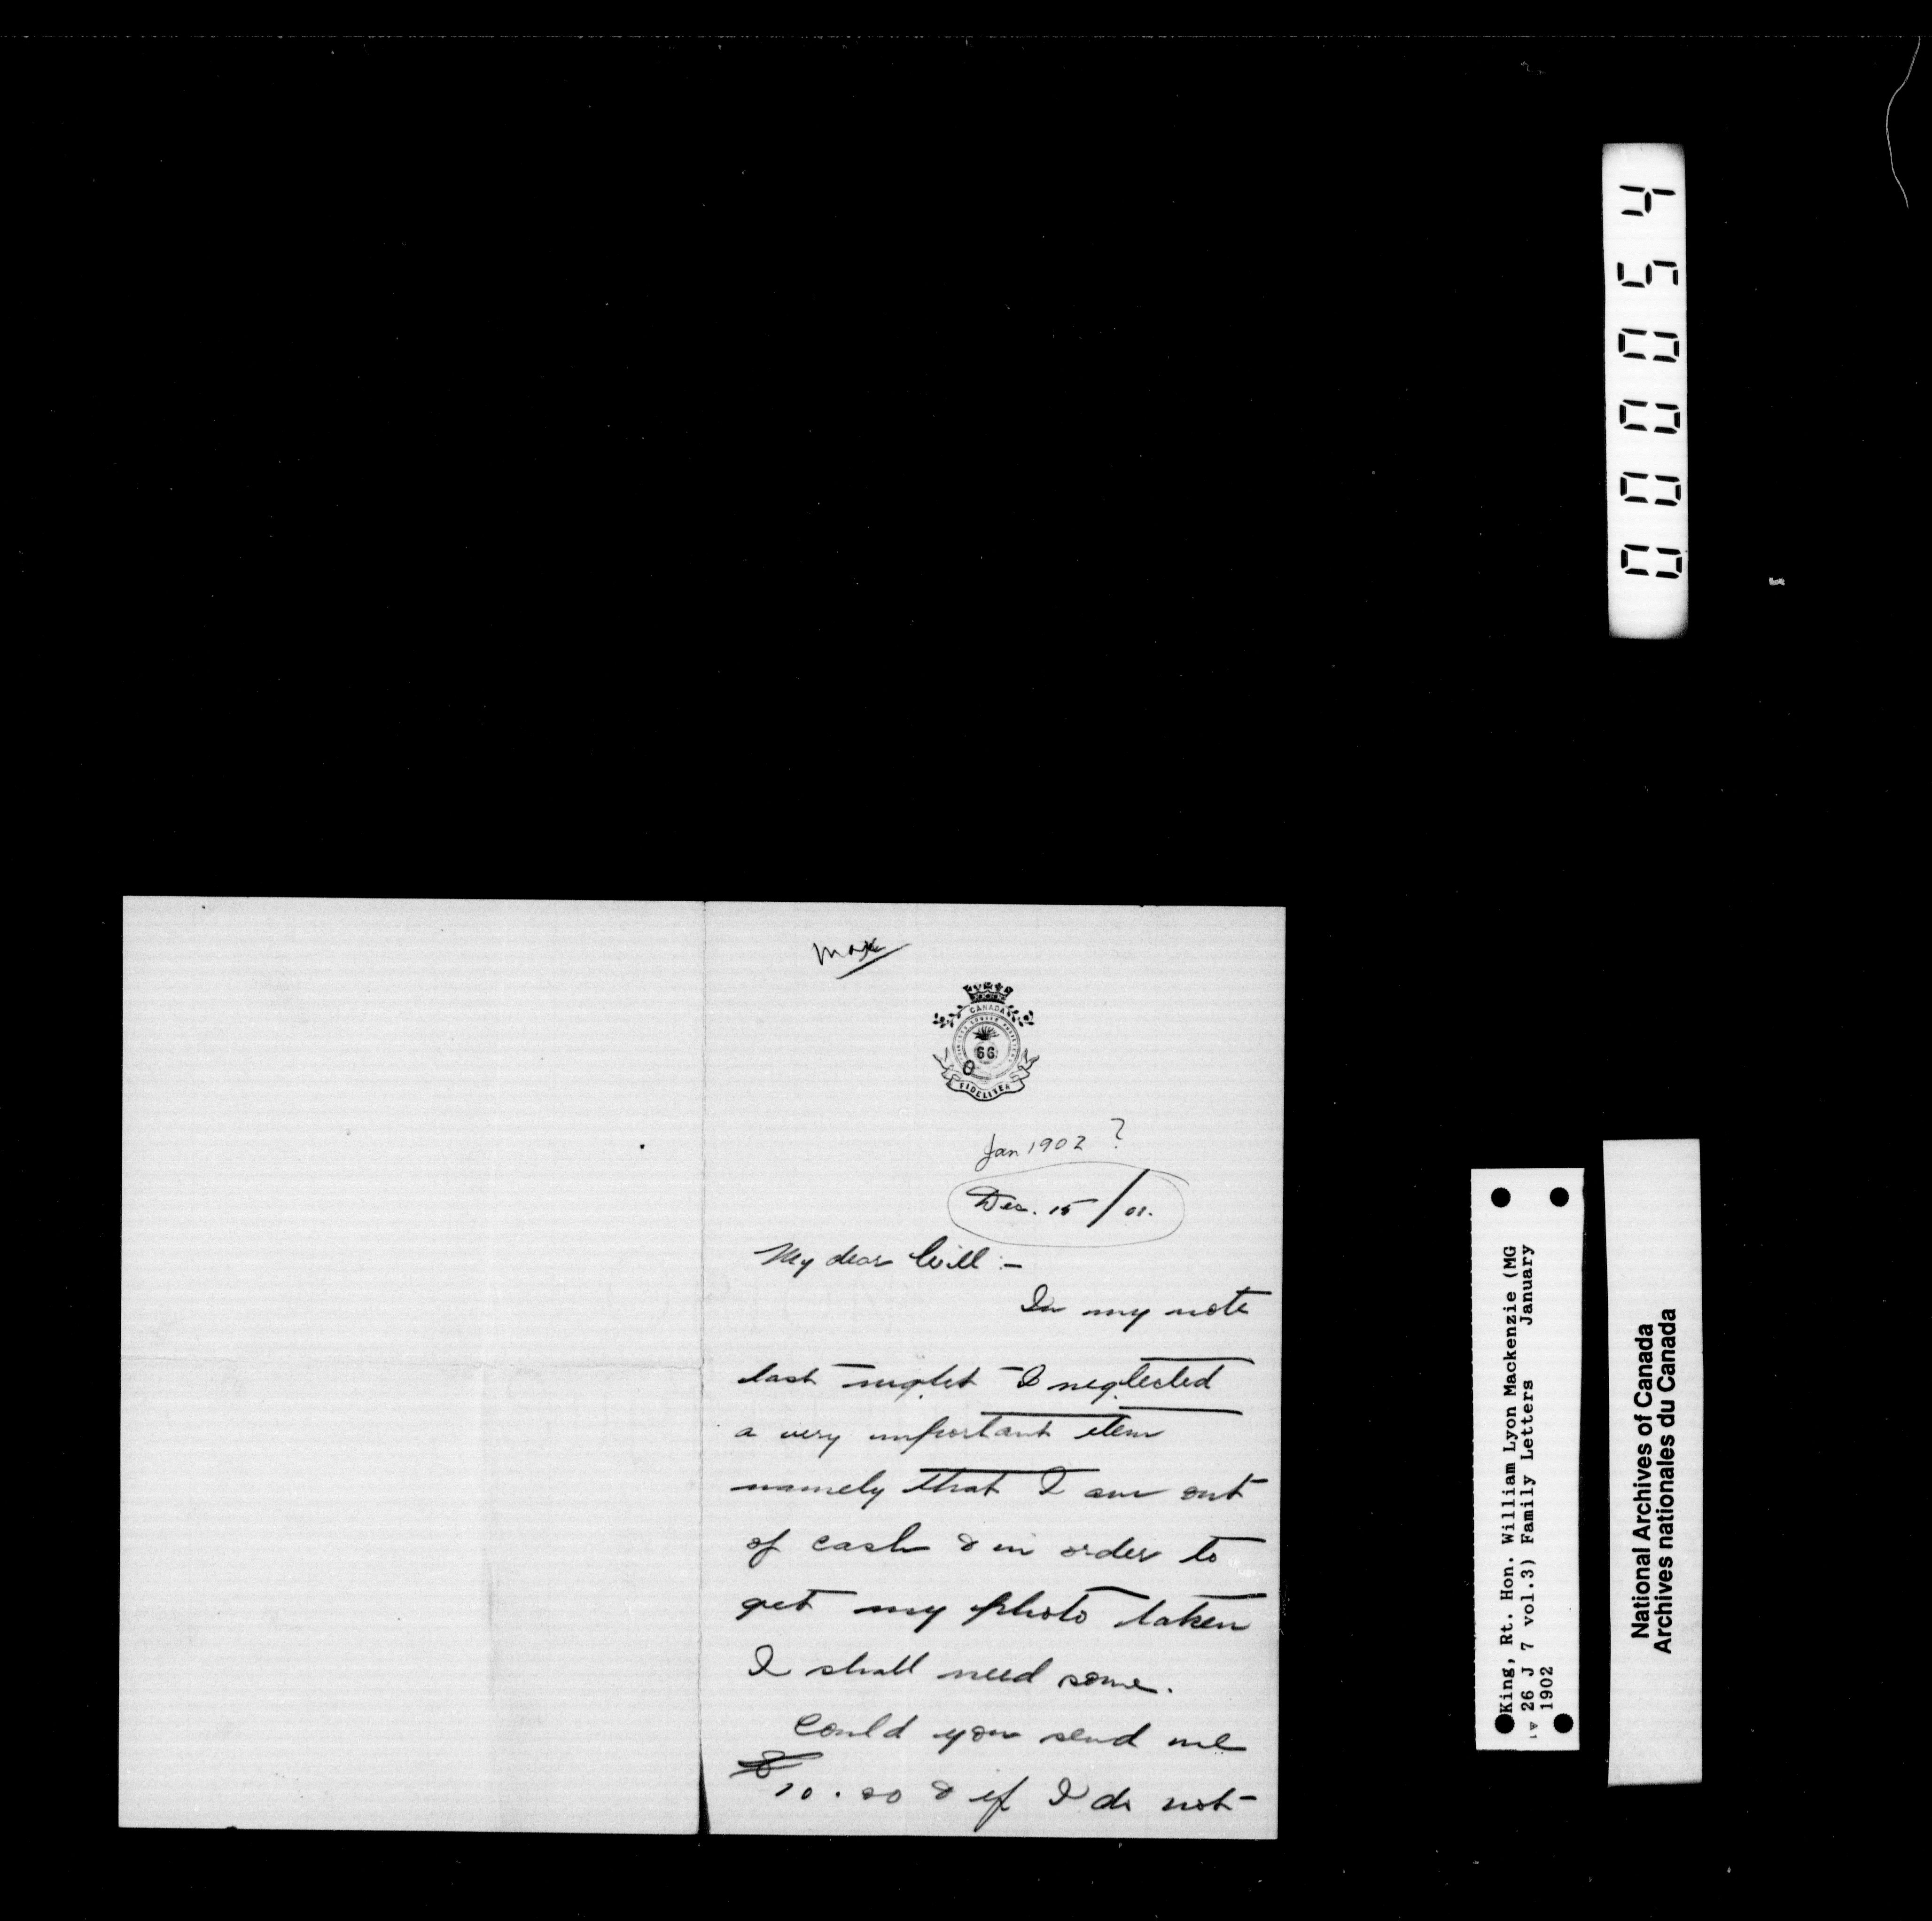 Max
CANADA
66
FIDELITER
Jan 1902 ?
Dec. 15/01.
My dear Will :-
In my note
last night I neglected
a very important item
namely that I am out
of cash & in order to
get my photo taken
I shall need some.
Could you send me
$10.00 & if I do not
000054
King, Rt. Hon. William Lyon Mackenzie (MG
26 J 7 vol.3) Family Letters January
1902
National Archives of Canada
Archives nationales du Canada